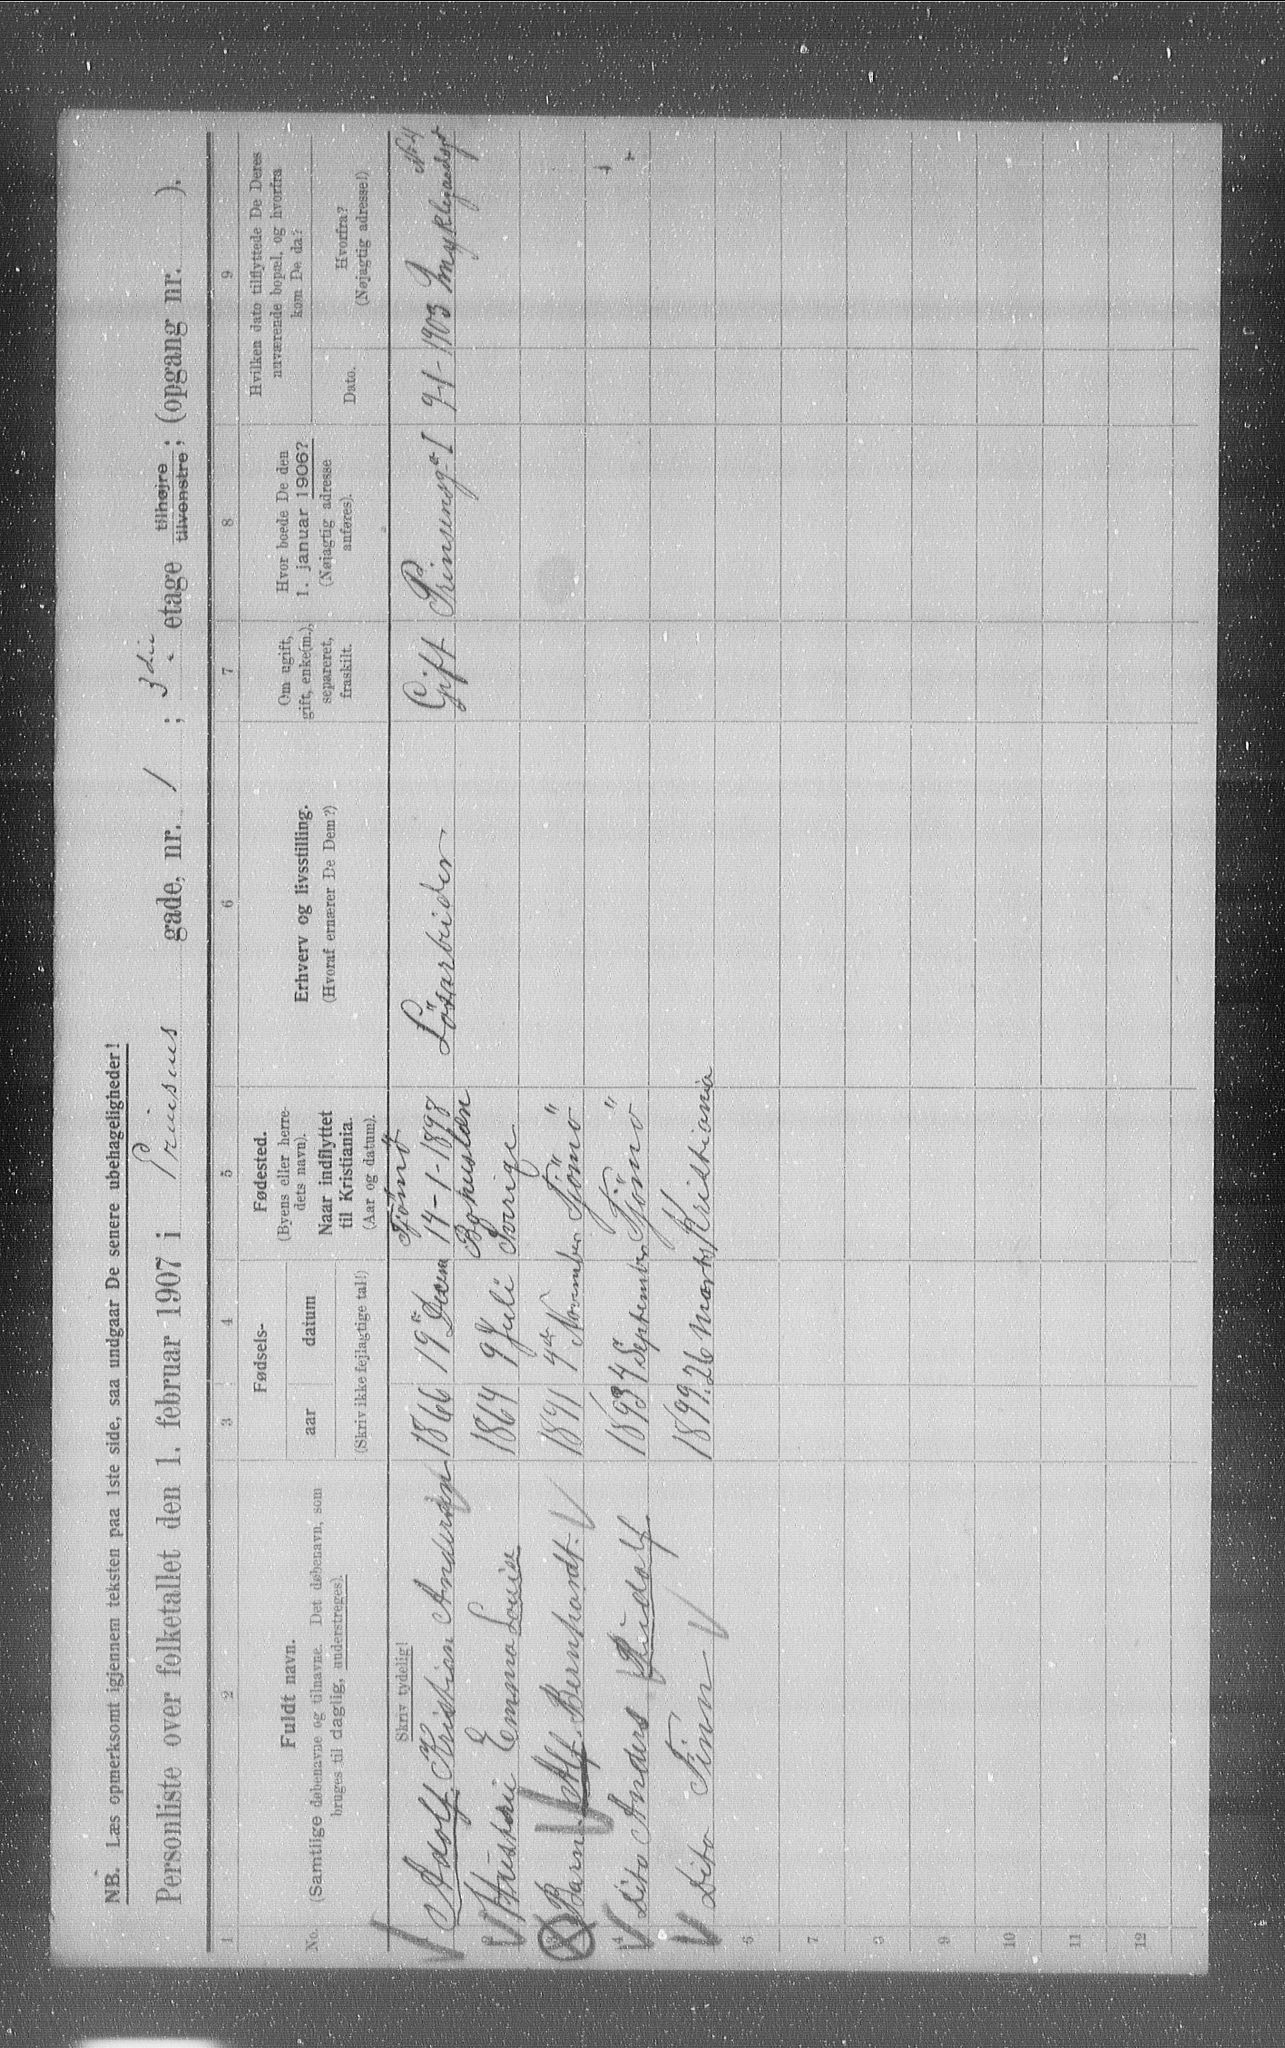 NB. Læs opmerksomt igjennem teksten paa 1ste side, saa undgaar De senere ubehageligheder!
Personliste over folketallet den 1. februar 1907 i Prinsens gade, nr. 1 ; 3die etage tilhøjre tilvenstre ; (opgang nr. ).
1 2 3 4 5 6 7 8 9
No.
Fuldt navn.
(Samtlige døbenavne og tilnavne. Det døbenavn, som
bruges til daglig, understreges).
Fødsels-
aar datum
(Skriv ikke fejlagtige tal!)
Fødested.
(Byens eller herre-
dets navn).
Naar indflyttet
til Kristiania.
(Aar og datum).
Erhverv og livsstilling.
(Hvoraf ernærer De Dem?)
Om ugift,
gift, enke(m.),
separeret,
fraskilt.
Hvor boede De den
1. januar 1906?
(Nøjagtig adresse
anføres).
Hvilken dato tilflyttede De Deres
nuværende bopæl, og hvorfra
kom De da?
Dato.
Hvorfra?
(Nøjagtig adresse!)
Skriv tydelig!
Adolf Kristian Andersen 1866 19 Decem Tjömö 14-1-1898 Lösarbeider Gift Prinsensg 1903
2 Hustru Emma Louise 1864 9 Juli Bohuslän Sverige
3 Barn Alf Bernhardt 1891 November Tjömö "
4 Dito Anders Rudolf 1893 4 September Tjömö "
Dito Finn 1899 26 Marts Kristiania
6
7
8
9
10
11
12